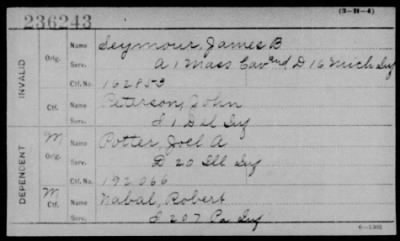 (3-H-4)
236243
INVALID
Orig.
Name Seymour, James B
Serv. A 1 Mass Cav and D 16 Mich Inf
Ctf. No. 162853
Ctf.
Name Peterson, John
Serv. I 1 Del Inf
DEPENDENT
M
Orig.
Name Potter, Joel A
Serv. D 20 Ill Inf
Ctf. No. 192066
M
Ctf.
Name Nabal, Robert
Serv. I 207 Pa Inf